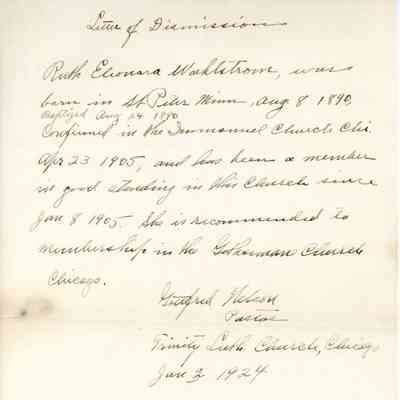 Letter of Dismission
Ruth Eleonara Wahlstrom, was
born in St Peter Minn, Aug 8 1890,
Baptized Aug 24 1890
Confirmed in the Immanuel Church Chi.
Apr 23 1905, and has been a member
in good standing in this Church since
Jan 8 1905. She is recommended to
membership in the Church
Chicago.
Gottfred Nelson
Pastor
Trinity Luth. Church, Chicago
Jan 3 1924